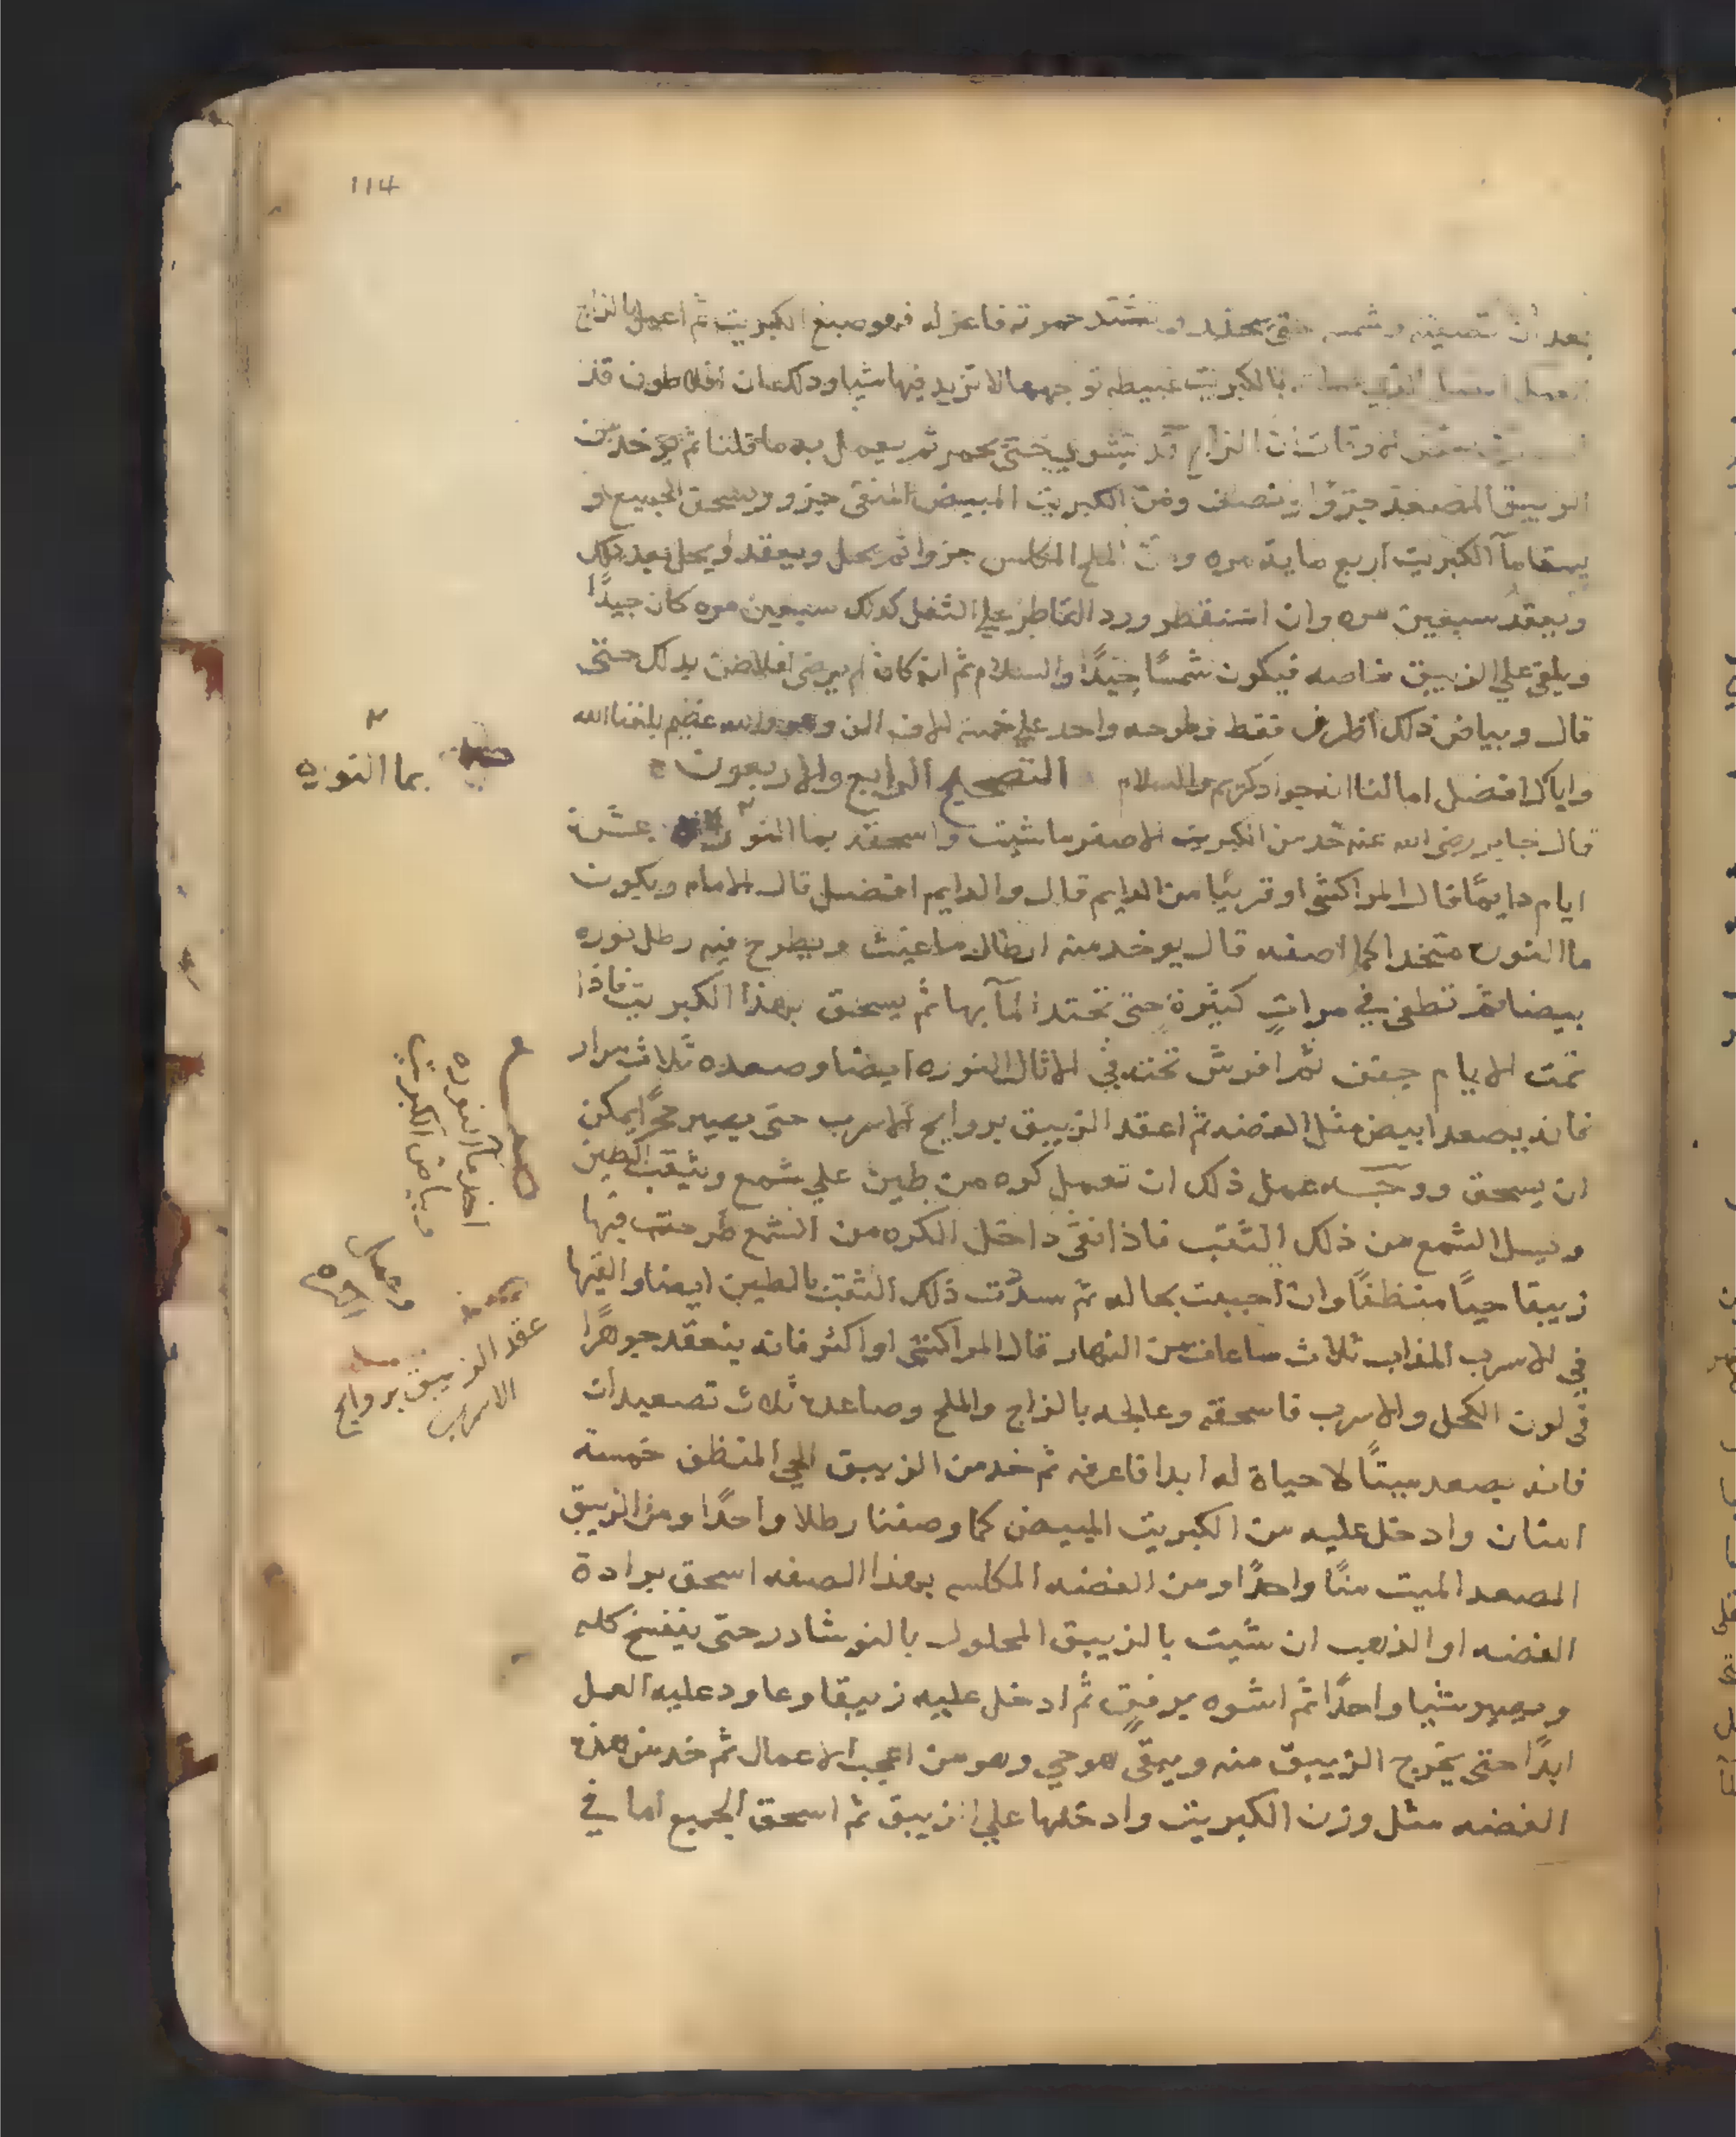 114
بعد ان تصيفه وشمسه حتى ينعقد وتشتد حمرته فاعزله فهو صبغ الكبريت ثم اعمل بالزاج
بالكبريت عبيطه توجهها لا تزيد فيها شيا وذلك ان افلاطون قد
وقال ان الزاج قد يتشوي حتى يحمر ثم يعمل به ما قلنا ثم يوخذ من
الزيبق المصعد جزوا ونصف ومن الكبريت المبيض المنقى جزو ويسحق الجميع او
يسقا مآ الكبريت اربع مايه مره ومن الملح المكلس جزوا ثم يحل ويعقد ويحل بعد ذلك
ويعقد سبعين مره وان استقطر ورد القاطر علي الثفل كذلك سبعين مره كان جيدًا
ويلقى علي الزيبق خاصه فيكون شمسًا جيدًا والسلام ثم انه كان لم يرضى افلاطن بذلك حتى
قال وبياض ذلك اظرف فقط وطرحه واحد علي خمسة الاف الف وهو والله عظيم بلغنا الله
واياك افضل امالنا انه جواد كريم والسلام التصحيح الرابع والاربعون
قال جابر رضى الله عنه خد من الكبريت الاصفر ما شيت واسحقه بما النوره عشرة
ايام دايمًا قال المراكشي او قريبًا من الدايم قال والدايم افضل قال الامام ويكون
ما النوره متخدا كما اصفه قال يوخد منه ارطال ما عنيت ويطرح فيه رطل نوره
بيضا ثم تطفى في مراتٍ كثيرةٍ حتى تحتد المآ بها ثم يسحق بهذا الكبريت فاذا
تمت الايام جفف ثم افرش تحته في الاثال النوره ايضا وصعده ثلاث مرار
فانه يصعد ابيض مثل الفضه ثم اعقد الزيبق بروايح الاسرب حتى يصير حجرًا يمكن
ان يسحق ووجه عمل ذلك ان تعمل كره من طين علي شمع وتثقب الطين
ويسل الشمع من ذلك الثقب فاذا نقى داخل الكره من الشمع طرحت فيها
زيبقا حيًا منظفًا وان احببت بحاله ثم سدّت ذلك الثقب بالطين ايضا والقيها
في الاسرب المذاب ثلاث ساعات من النهار قال المراكشي او اكثر فانه ينعقد جوهرًا
في لون الكحل والاسرب فاسحقه وعالجه بالزاج والملح وصاعده ثلاث تصعيدات
فانه يصعد ميتًا لا حياة له ابدا فاعرفه ثم خد من الزيبق الحي المنظف خمسة
امنان وادخل عليه من الكبريت المبيض كما وصفنا رطلا واحدًا ومن الزيبق
المصعد الميت منًا واحدًا ومن الفضه المكلسه بهذا الصفه اسحق برادة
الفضه او الذهب ان شيت بالزيبق المحلول بالنوشادر حتى يتفسخ كله
ويصير شيا واحدًا ثم اشوه برفقٍ ثم ادخل عليه زيبقا وعاود عليه العمل
ابدًا حتى يخرج الزيبق منه ويبقى هو حي وهو من اعجب الاعمال ثم خد من هذه
الفضه مثل وزن الكبريت وادخلها علي الزيبق ثم اسحق الجميع اما في
بما النوره
اخذ مآ النوره
وبياض الكبريت
عقد الزيبق بروايح
الاسرب